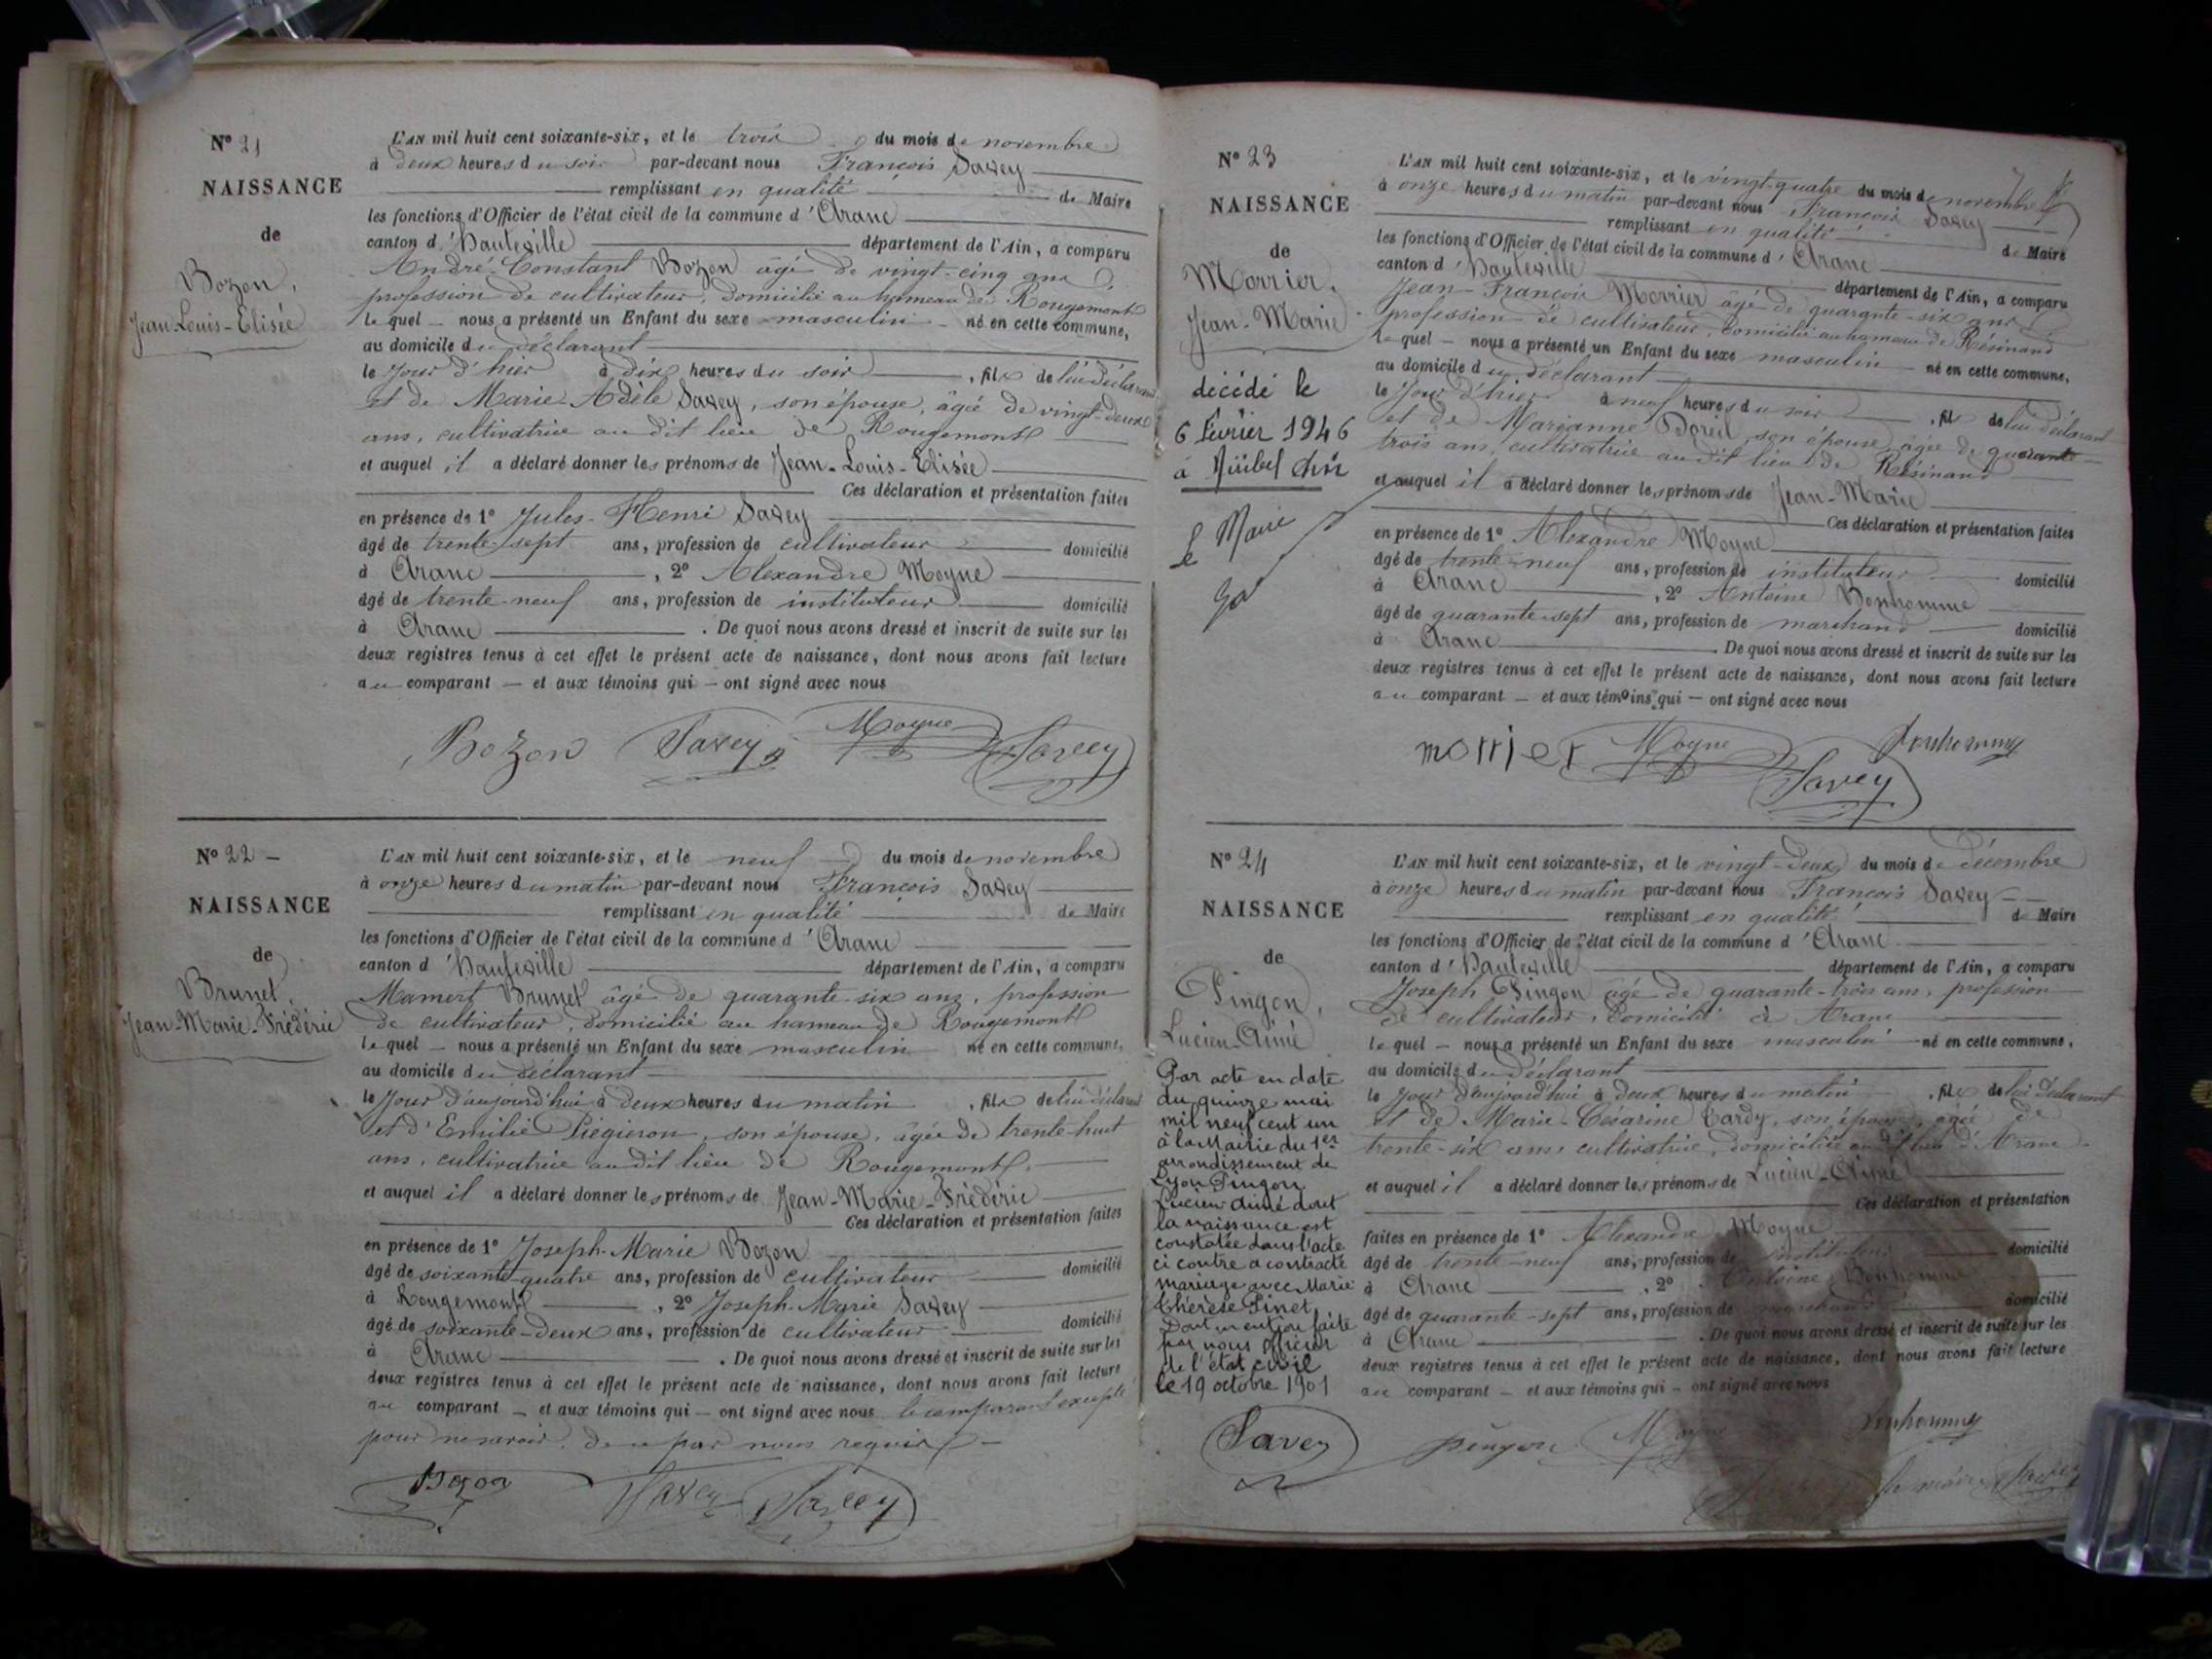 N° 21
NAISSANCE
de
Bozon,
Jean-Louis-Elisée
L'AN mil huit cent soixante-six, et le trois du mois de novembre
à deux heures du soir par-devant nous François Savey
remplissant en qualité de Maire
les fonctions d'Officier de l'état civil de la commune d'Aranc
canton d'Hauteville département de l'Ain, a comparu
André-Constant Bozon âgé de vingt-cinq ans
profession de cultivateur, domicilié au hameau de Rougemont
lequel nous a présenté un Enfant du sexe masculin né en cette commune,
au domicile du déclarant
le jour d'hier à dix heures du soir, fils de lui déclarant
et de Marie-Adèle Savey, son épouse, âgée de vingt-deux
ans, cultivatrice au dit lieu de Rougemont
et auquel il a déclaré donner les prénoms de Jean-Louis-Elisée
Ces déclaration et présentation faites
en présence de 1° Jules-Henri Savey
âgé de trente-sept ans, profession de cultivateur domicilié
à Aranc, 2° Alexandre Moyne
âgé de trente-neuf ans, profession de instituteur domicilié
à Aranc. De quoi nous avons dressé et inscrit de suite sur les
deux registres tenus à cet effet le présent acte de naissance, dont nous avons fait lecture
au comparant et aux témoins qui ont signé avec nous
Bozon Savey Moyne Savey
N° 22
NAISSANCE
de
Brunet,
Jean-Marie-Frédéric
L'AN mil huit cent soixante-six, et le neuf du mois de novembre
à onze heures du matin par-devant nous François Savey
remplissant en qualité de Maire
les fonctions d'Officier de l'état civil de la commune d'Aranc
canton d'Hauteville département de l'Ain, a comparu
Mamert Brunet âgé de quarante-six ans, profession
de cultivateur, domicilié au hameau de Rougemont
lequel nous a présenté un Enfant du sexe masculin né en cette commune,
au domicile du déclarant
le jour d'aujourd'hui à deux heures du matin, fils de lui déclarant
et d'Emilie, son épouse, âgée de trente-huit
ans, cultivatrice au dit lieu de Rougemont
et auquel il a déclaré donner les prénoms de Jean-Marie-Frédéric
Ces déclaration et présentation faites
en présence de 1° Joseph-Marie Bozon
âgé de soixante-quatre ans, profession de cultivateur domicilié
à Rougemont, 2° Joseph-Marie Savey
âgé de soixante-deux ans, profession de cultivateur domicilié
à Aranc. De quoi nous avons dressé et inscrit de suite sur les
deux registres tenus à cet effet le présent acte de naissance, dont nous avons fait lecture
au comparant et aux témoins qui ont signé avec nous le comparant excepté
pour ne savoir, de ce par nous requis
Bozon Savey Savey
N° 23
NAISSANCE
de
Morrier,
Jean-Marie
décédé le
6 Février 1946
à
Le Maire
L'AN mil huit cent soixante-six, et le vingt-quatre du mois de novembre
à onze heures du matin par-devant nous François Savey
remplissant en qualité de Maire
les fonctions d'Officier de l'état civil de la commune d'Aranc
canton d'Hauteville département de l'Ain, a comparu
Jean-François Morrier âgé de quarante-six ans
profession de cultivateur, domicilié au hameau de Résinand
lequel nous a présenté un Enfant du sexe masculin né en cette commune,
au domicile du déclarant
le jour d'hier à neuf heures du soir, fils de lui déclarant
et de Marianne, son épouse, âgée de quarante-
trois ans, cultivatrice au dit lieu de Résinand
et auquel il a déclaré donner les prénoms de Jean-Marie
Ces déclaration et présentation faites
en présence de 1° Alexandre Moyne
âgé de trente-neuf ans, profession de instituteur domicilié
à Aranc, 2° Antoine Bonhomme
âgé de quarante-sept ans, profession de marchand domicilié
à Aranc. De quoi nous avons dressé et inscrit de suite sur les
deux registres tenus à cet effet le présent acte de naissance, dont nous avons fait lecture
au comparant et aux témoins qui ont signé avec nous
morrier Moyne Bonhomme
Savey
N° 24
NAISSANCE
de
Pingon,
Lucien-Aimé
Par acte en date
du quinze mai
mil neuf cent un
à la Mairie du 1er
arrondissement de
Lyon Pingon
Lucien Aimé dont
la naissance est
constatée dans l'acte
ci contre a contracté
mariage avec Marie
Thérèse Pinet
Dont mention faite
par nous officier
de l'état civil
le 19 octobre 1901
Savey
L'AN mil huit cent soixante-six, et le vingt-deux du mois de décembre
à onze heures du matin par-devant nous François Savey
remplissant en qualité de Maire
les fonctions d'Officier de l'état civil de la commune d'Aranc
canton d'Hauteville département de l'Ain, a comparu
Joseph Pingon âgé de quarante-trois ans, profession
de cultivateur, domicilié à Aranc
lequel nous a présenté un Enfant du sexe masculin né en cette commune,
au domicile du déclarant
le jour d'aujourd'hui à deux heures du matin, fils de lui déclarant
et de Marie-Césarine Tardy, son épouse, âgée de
trente-six ans, cultivatrice, domiciliée au dit lieu d'Aranc
et auquel il a déclaré donner les prénoms de Lucien-Aimé
Ces déclaration et présentation
faites en présence de 1° Alexandre Moyne
âgé de trente-neuf ans, profession de instituteur domicilié
à Aranc, 2° Antoine Bonhomme
âgé de quarante-sept ans, profession de marchand domicilié
à Aranc. De quoi nous avons dressé et inscrit de suite sur les
deux registres tenus à cet effet le présent acte de naissance, dont nous avons fait lecture
au comparant et aux témoins qui ont signé avec nous
pingon Moyne Bonhomme
le maire Savey